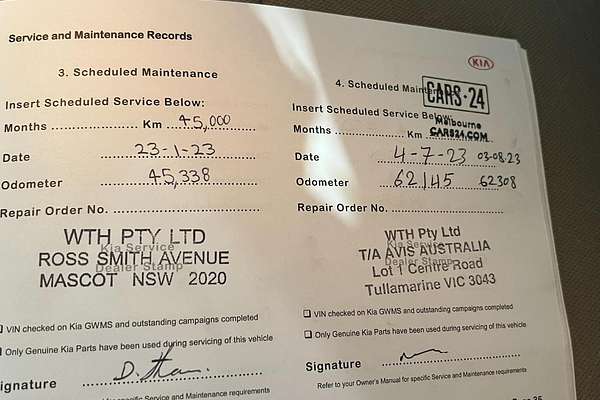 Service and Maintenance Records
KIA
3. Scheduled Maintenance
Insert Scheduled Service Below:
Months Km 45,000
Date 23-1-23
Odometer 45,338
Repair Order No.
WTH PTY LTD
Kia Service
ROSS SMITH AVENUE
Dealer Stamp
MASCOT NSW 2020
VIN checked on Kia GWMS and outstanding campaigns completed
Only Genuine Kia Parts have been used during servicing of this vehicle
ignature
specific Service and Maintenance requirements
4. Scheduled Maint
CARS·24
Insert Scheduled Service Below:
Melbourne
Months Km
CARS24.COM
Date 4-7-23 03-08-23
Odometer 62,145 62308
Repair Order No.
WTH Pty Ltd
Kia Service
T/A AVIS AUSTRALIA
Dealer Stamp
Lot 1 Centre Road
Tullamarine VIC 3043
VIN checked on Kia GWMS and outstanding campaigns completed
Only Genuine Kia Parts have been used during servicing of this vehicle
Signature
Refer to your Owner's Manual for specific Service and Maintenance requirements